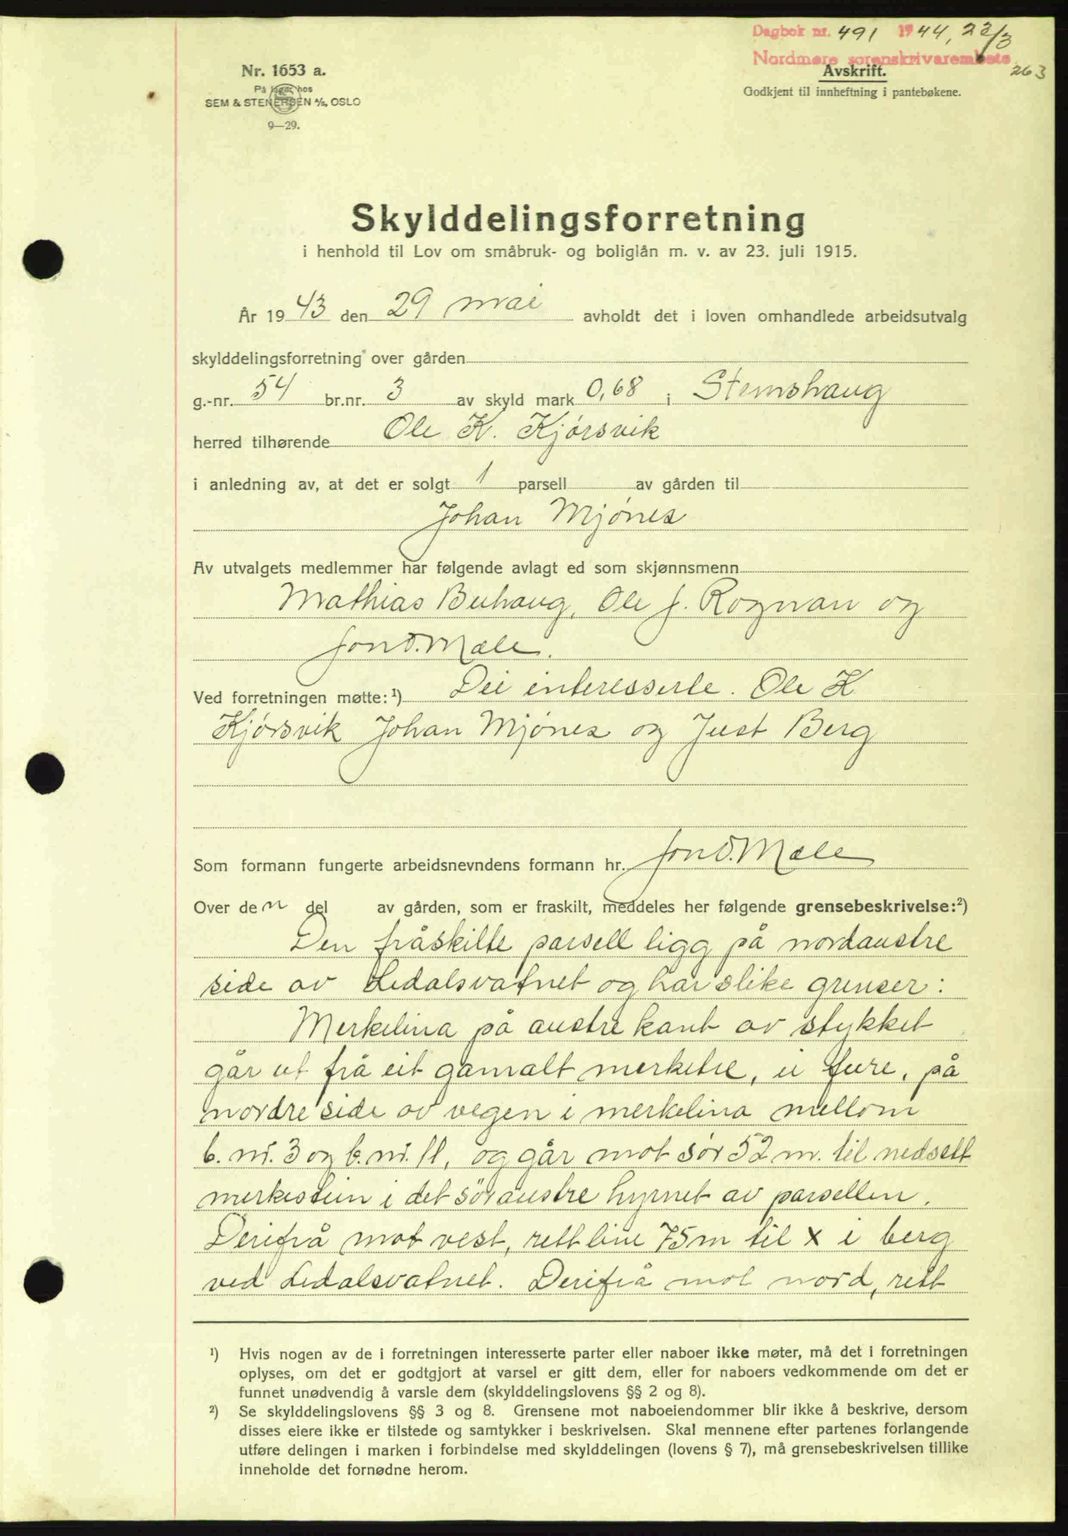 Dagbok nr. 491 1944, 22/3
Nordmøre sorenskrivarembete
263
Nr. 1653 a.
På lager hos
SEM & STENERSEN A/S, OSLO
9—29.
Avskrift.
Godkjent til innheftning i pantebøkene.
Skylddelingsforretning
i henhold til Lov om småbruk- og boliglån m. v. av 23. juli 1915.
År 1943 den 29 mai avholdt det i loven omhandlede arbeidsutvalg
skylddelingsforretning over gården
g.-nr. 54 br.nr. 3 av skyld mark 0,68 i Stemshaug
herred tilhørende Ole K. Kjørsvik
i anledning av, at det er solgt 1 parsell av gården til
Johan Mjønes
Av utvalgets medlemmer har følgende avlagt ed som skjønnsmenn
Mathias Buhaug, Ole J. Rognan og
Jon O. Mæle.
Ved forretningen møtte:¹) Dei interesserte. Ole K
Kjørsvik Johan Mjønes og Just Berg
Som formann fungerte arbeidsnevndens formann hr. Jon O. Mæle
Over den del av gården, som er fraskilt, meddeles her følgende grensebeskrivelse:²)
Den fråskilte parsell ligg på nordaustre
side av Ledalsvatnet og har slike grenser:
Merkelina på austre kant av stykket
går ut frå eit gamalt merketre, ei fure, på
nordre side av vegen i merkelina mellom
b.nr. 3 og b.nr. 11, og går mot sør 52 m. til nedsett
merkestein i det søraustre hyrnet av parsellen.
Derifrå mot vest, rett line 75 m til x i berg
ved Ledalsvatnet. Derifrå mot nord, rett
¹) Hvis nogen av de i forretningen interesserte parter eller naboer ikke møter, må det i forretningen
oplyses, om det er godtgjort at varsel er gitt dem, eller for naboers vedkommende om det er
funnet unødvendig å varsle dem (skylddelingslovens §§ 2 og 8).
²) Se skylddelingslovens §§ 3 og 8. Grensene mot naboeiendommer blir ikke å beskrive, dersom
disses eiere ikke er tilstede og samtykker i beskrivelsen. Skal mennene efter partenes forlangende
utføre delingen i marken i forbindelse med skylddelingen (lovens § 7), må grensebeskrivelsen tillike
inneholde det fornødne herom.